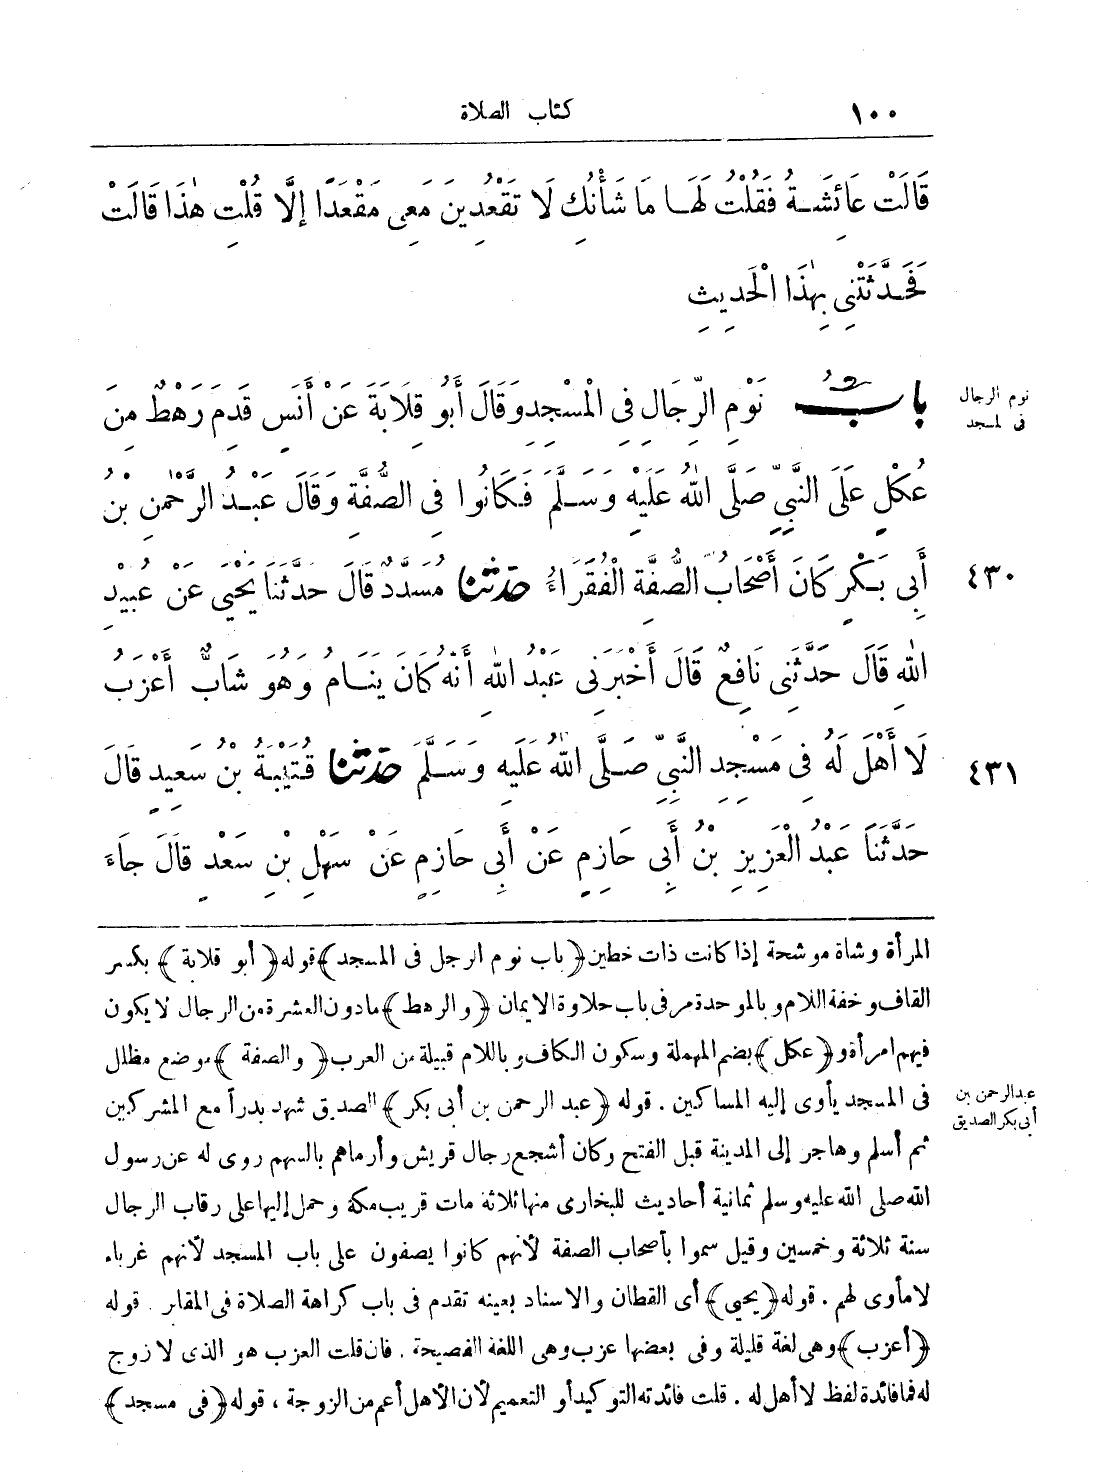 ١٠٠ كتاب الصلاة
قَالَتْ عَائِشَةُ فَقُلْتُ لَهَا مَا شَأْنُكِ لَا تَقْعُدِينَ مَعِي مَقْعَدًا إِلَّا قُلْتِ هٰذَا قَالَتْ
فَحَدَّثَتْنِي بِهٰذَا الْحَدِيثِ
بابُ نَوْمِ الرِّجَالِ فِي الْمَسْجِدِ وَقَالَ أَبُو قِلَابَةَ عَنْ أَنَسٍ قَدِمَ رَهْطٌ مِنْ
نوم الرجال
فى المسجد
عُكْلٍ عَلَى النَّبِيِّ صَلَّى اللهُ عَلَيْهِ وَسَلَّمَ فَكَانُوا فِي الصُّفَّةِ وَقَالَ عَبْدُ الرَّحْمٰنِ بْنُ
أَبِي بَكْرٍ كَانَ أَصْحَابُ الصُّفَّةِ الْفُقَرَاءُ حدثنا مُسَدَّدٌ قَالَ حَدَّثَنَا يَحْيَى عَنْ عُبَيْدِ
٤٣٠
اللهِ قَالَ حَدَّثَنِي نَافِعٌ قَالَ أَخْبَرَنِي عَبْدُ اللهِ أَنَّهُ كَانَ يَنَامُ وَهُوَ شَابٌّ أَعْزَبُ
لَا أَهْلَ لَهُ فِي مَسْجِدِ النَّبِيِّ صَلَّى اللهُ عَلَيْهِ وَسَلَّمَ حدثنا قُتَيْبَةُ بْنُ سَعِيدٍ قَالَ
٤٣١
حَدَّثَنَا عَبْدُ الْعَزِيزِ بْنُ أَبِي حَازِمٍ عَنْ أَبِي حَازِمٍ عَنْ سَهْلِ بْنِ سَعْدٍ قَالَ جَاءَ
المرأة وشاة موشحة إذا كانت ذات خطين ﴿باب نوم الرجل فى المسجد﴾ قوله ﴿أبو قلابة﴾ بكسر
القاف وخفة اللام وبالموحدة مر فى باب حلاوة الايمان ﴿والرهط﴾ مادون العشرة من الرجال لا يكون
فيهم امرأة و ﴿عكل﴾ بضم المهملة وسكون الكاف وباللام قبيلة من العرب ﴿والصفة﴾ موضع مظلل
فى المسجد يأوى إليه المساكين . قوله ﴿عبد الرحمن بن أبى بكر﴾ الصديق شهد بدرأ مع المشركين
عبدالرحمن بن
أبى بكر الصديق
ثم أسلم وهاجر إلى المدينة قبل الفتح وكان أشجع رجال قريش وأرماهم بالسهم روى له عن رسول
الله صلى الله عليه وسلم ثمانية أحاديث للبخارى منها ثلاثة مات قريب مكة وحمل إليها على رقاب الرجال
سنة ثلاثة وخمسين وقيل سموا بأصحاب الصفة لأنهم كانوا يصفون على باب المسجد لأنهم غرباء
لا مأوى لهم . قوله ﴿يحيى﴾ أى القطان والاسناد بعينه تقدم فى باب كراهة الصلاة فى المقابر . قوله
﴿أعزب﴾ وهى لغة قليلة وفى بعضها عزب وهى اللغة الفصيحة . فان قلت العزب هو الذى لا زوج
له فما فائدة لفظ لا أهل له . قلت فائدته التوكيد أو التعميم لأن الأهل أعم من الزوجة ، قوله ﴿فى مسجد﴾